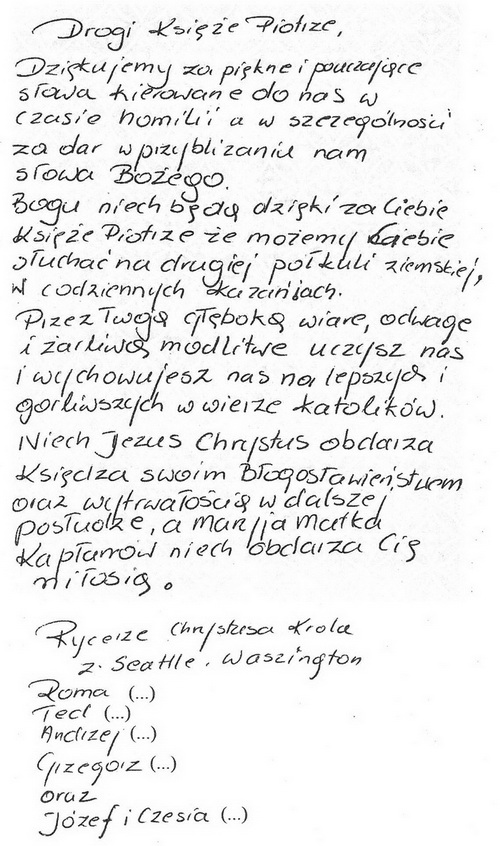 Drogi Księże Piotrze,
Dziękujemy za piękne i pouczające
słowa kierowane do nas w
czasie homilii a w szczególności
za dar w przybliżaniu nam
słowa Bożego.
Bogu niech będą dzięki za Ciebie
Księże Piotrze że możemy Ciebie
słuchać na drugiej półkuli ziemskiej,
w codziennych kazaniach.
Przez Twoją głęboką wiarę, odwagę
i żarliwą modlitwę uczysz nas
i wychowujesz nas na lepszych i
gorliwszych w wierze katolików.
Niech Jezus Chrystus obdarza
Księdza swoim Błogosławieństwem
oraz wytrwałością w dalszej
posłudze, a Maryja Matka
Kapłanów niech obdarza Cię
miłością.
Rycerze Chrystusa Króla
z. Seattle. Waszington
Roma (...)
Ted (...)
Andrzej (...)
Grzegorz (...)
oraz
Józef i Czesia (...)